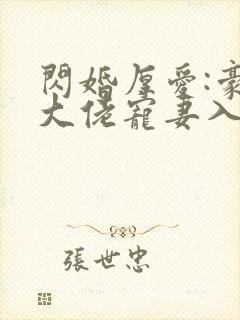 閃婚厚愛:豪
大佬寵妻入
張世忠